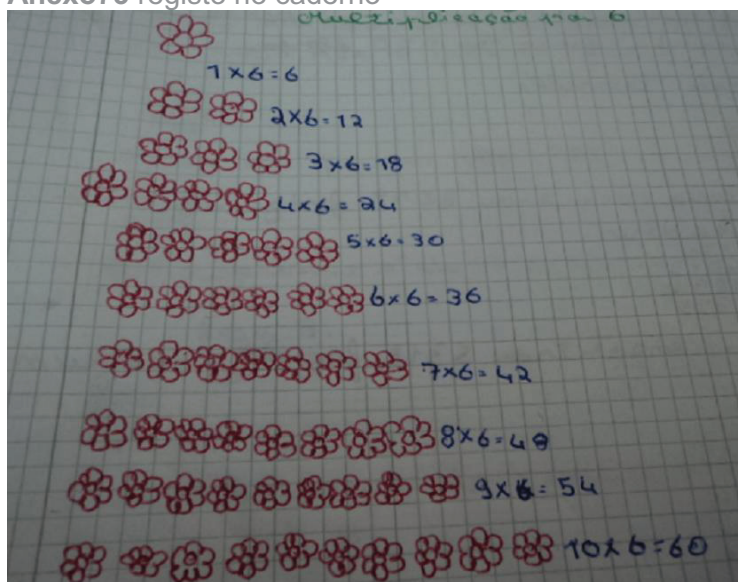 Anexo76 registo no caderno
Multiplicação por 6
1x6=6
2x6=12
3x6=18
4x6=24
5x6=30
6x6=36
7x6=42
8x6=48
9x6=54
10x6=60